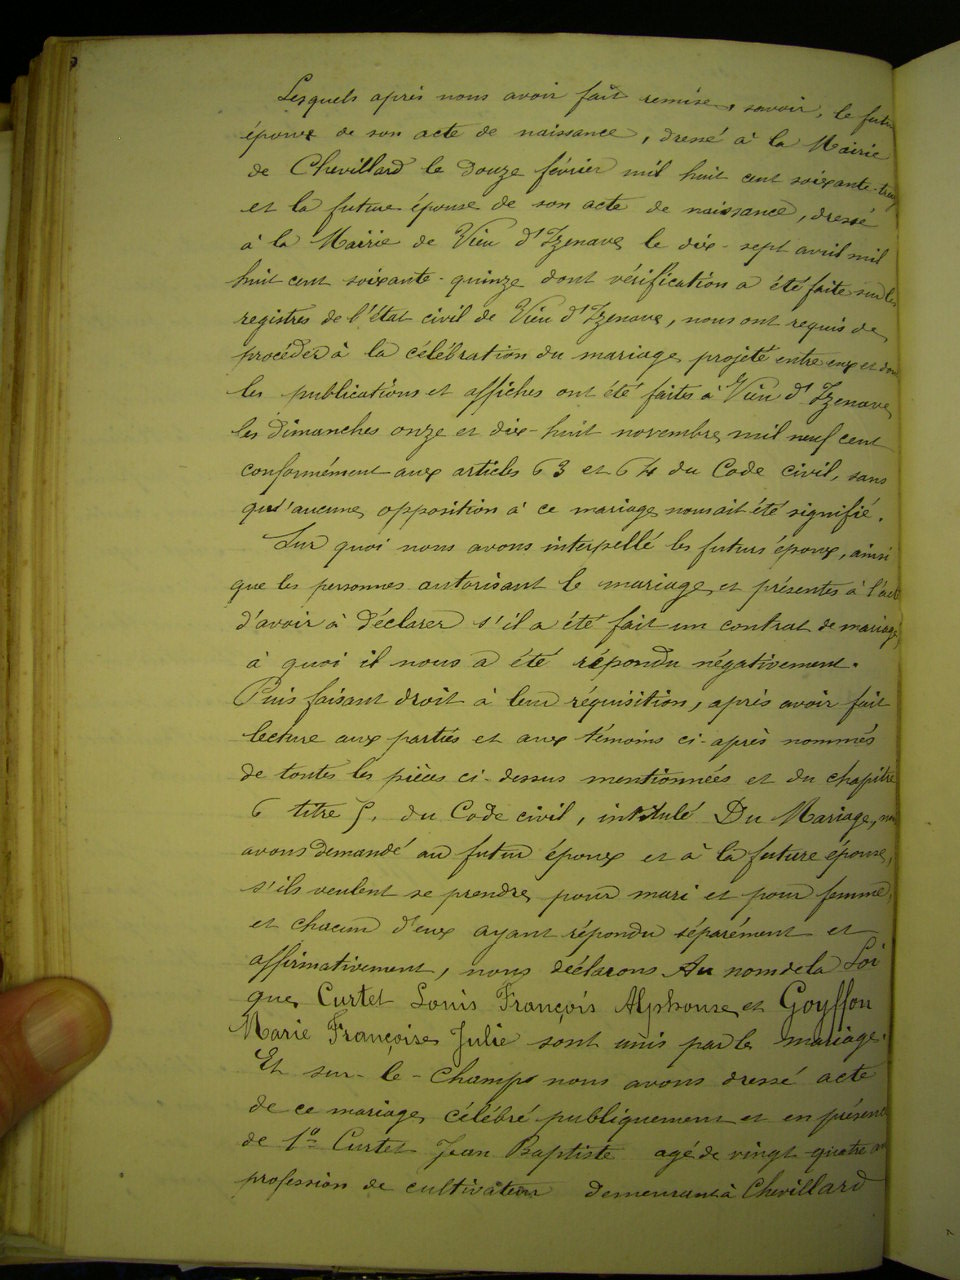 Lesquels après nous avoir fait remise, savoir, le futur
époux de son acte de naissance, dressé à la Mairie
de Chevillard le douze février mil huit cent soixante-
et la future épouse de son acte de naissance, dressé
à la Mairie de Vieu d'Izenave le dix-sept avril mil
huit cent soixante-quinze dont vérification a été faite sur les
registres de l'état civil de Vieu d'Izenave, nous ont requis de
procéder à la célébration du mariage projeté entre eux et dont
les publications et affiches ont été faites à Vieu d'Izenave
les dimanches onze et dix-huit novembre mil neuf cent
conformément aux articles 63 et 64 du Code civil, sans
qu'aucune opposition à ce mariage nous ait été signifié.
Sur quoi nous avons interpellé les futurs époux, ainsi
que les personnes autorisant le mariage et présentes à l'acte
d'avoir à déclarer s'il a été fait un contrat de mariage
à quoi il nous a été répondu négativement.
Puis faisant droit à leur réquisition, après avoir fait
lecture aux parties et aux témoins ci-après nommés
de toutes les pièces ci-dessus mentionnées et du chapitre
6 titre 5, du Code civil, intitulé Du Mariage, nous
avons demandé au futur époux et à la future épouse,
s'ils veulent se prendre pour mari et pour femme,
et chacun d'eux ayant répondu séparément et
affirmativement, nous déclarons Au nom de la Loi
que Curtet Louis François Alphonse et Goyffon
Marie Françoise Julie sont unis par le mariage.
Et sur-le-champ nous avons dressé acte
de ce mariage célébré publiquement et en présence
de 1º Curtet Jean Baptiste agé de vingt-quatre ans
profession de cultivateur demeurant à Chevillard